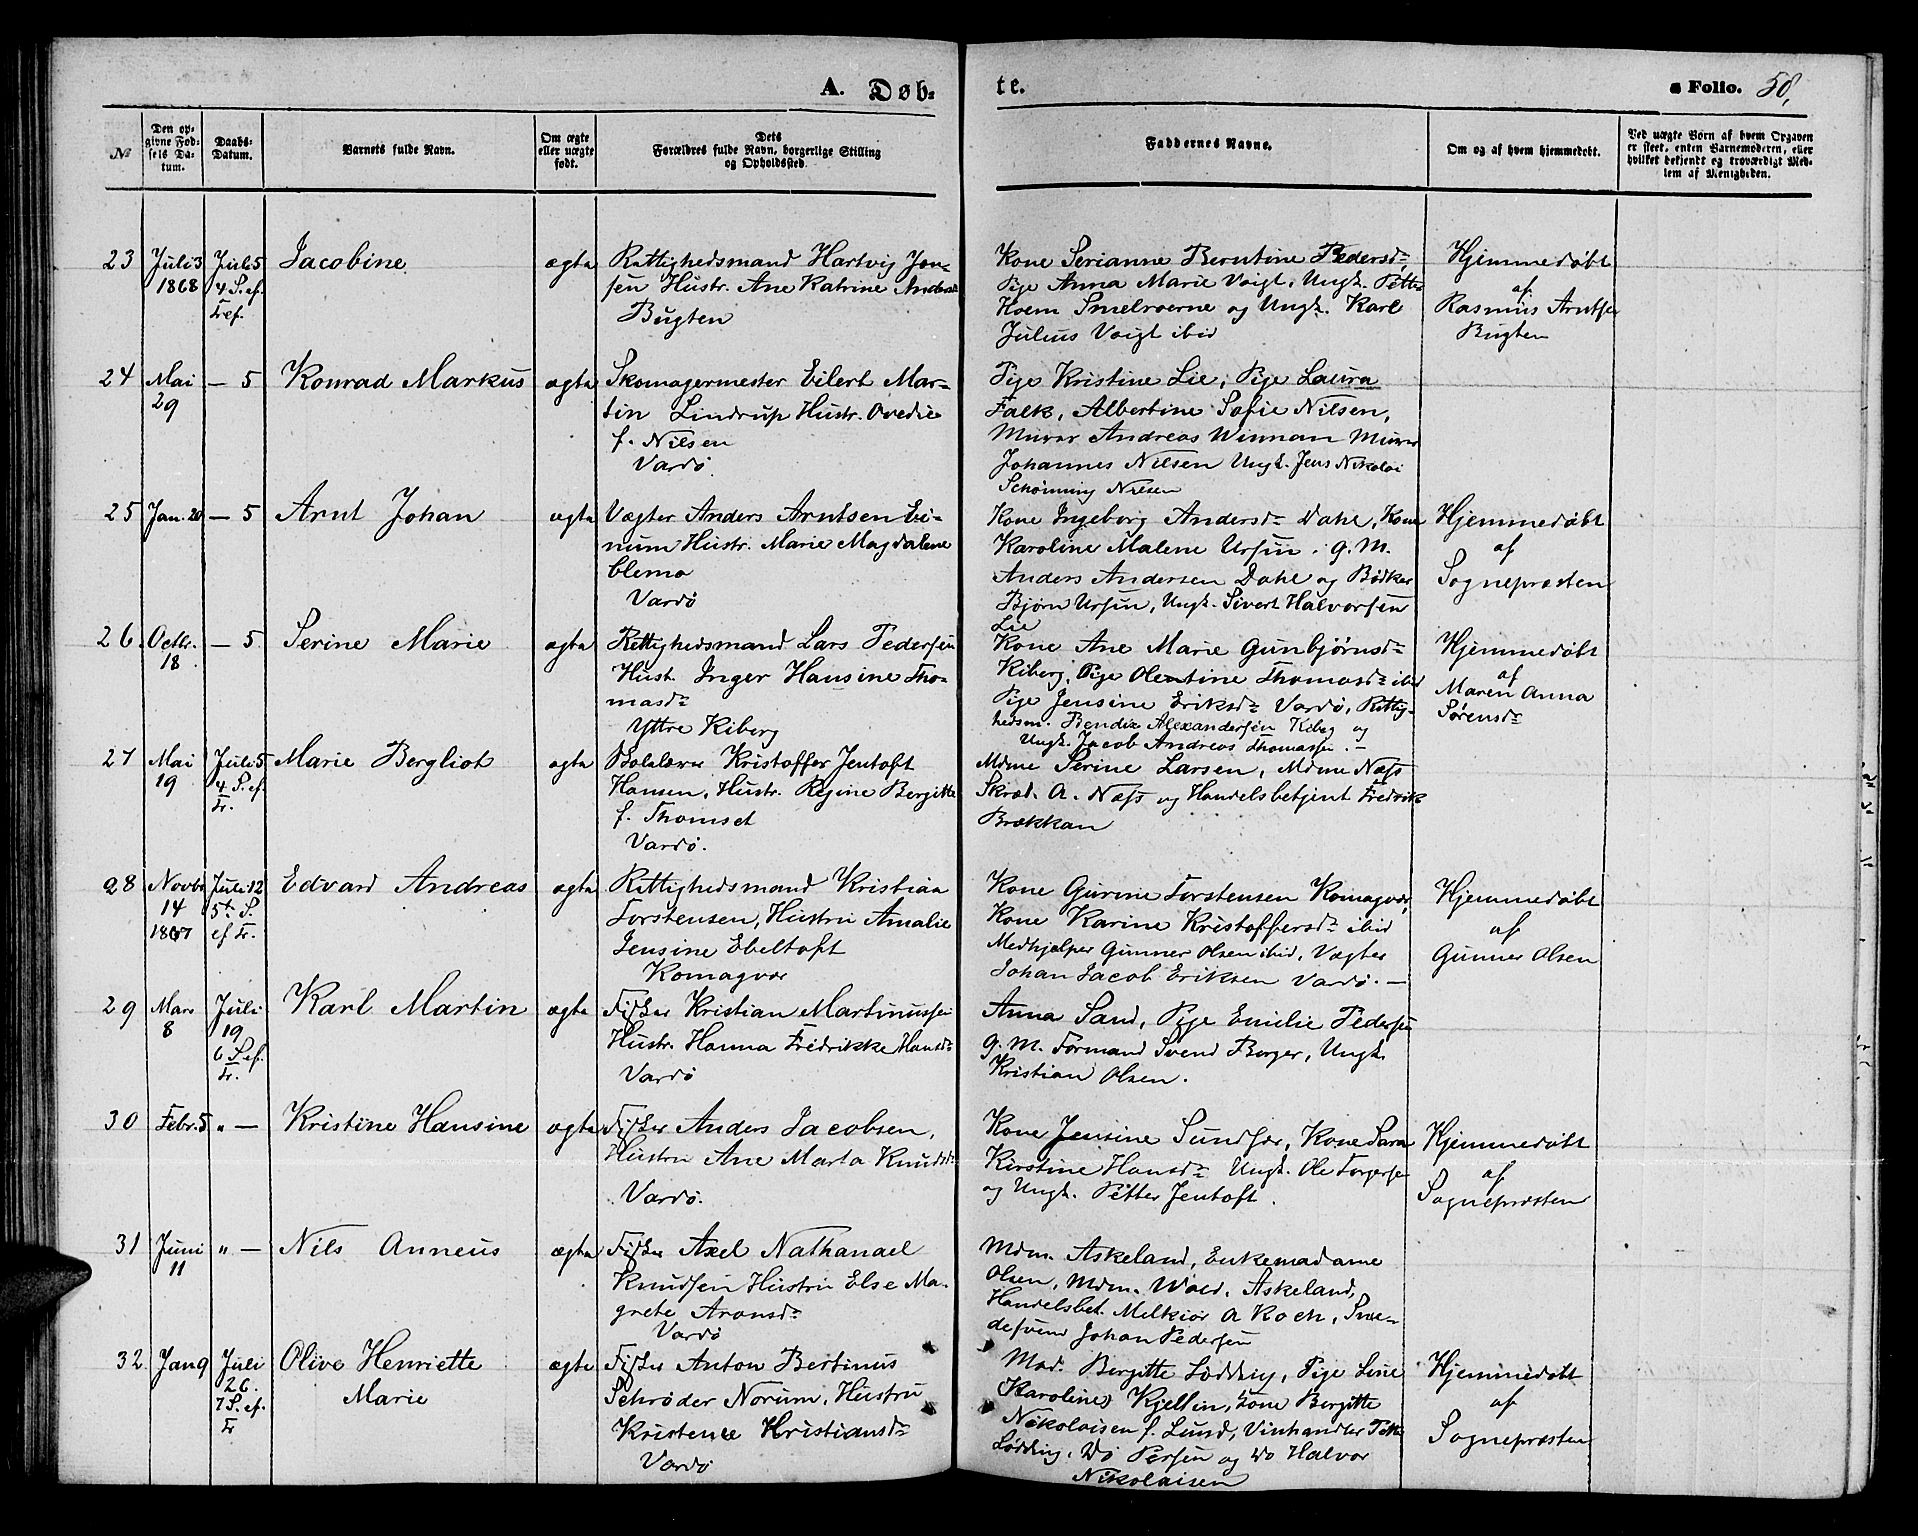 A. Døb=
te.
Folio. 58,
№
Den op=
givne Fød=
sels Da=
tum.
Daabs=
Datum.
Barnets fulde Navn.
Om ægte
eller uægte
født.
Dets
Forældres fulde Navn, borgerlige Stilling
og Opholdssted.
Faddernes Navne.
Om og af hvem hjemmedøbt.
Ved uægte Børn af hvem Opgaven
er skeet, enten Barnemoderen, eller
hvilket bekjendt og troværdigt Med=
lem af Menigheden.
23
Juli 3
1868
Juli 5
4 S. ef.
Tref.
Jacobine
ægte
Rettighedsmand Hartvig Jen=
sen Hustr. Ane Katrine Andersd
Bugten
Kone Serianne Berntine Pedersd,
Pige Anna Marie Voigt, Ungk. Petter
Hoem Smelroerne og Ungk. Karl
Julius Voigt ibid
Hjemmedøbt
af
Rasmus Arntsen
Bugten
24
Mai
29
— 5
Konrad Markus
ægte
Skomagermester Eilert Mar=
tin Lindrup Hustr. Ovedie
f. Nilsen
Vardø.
Pige Kristine Lie, Pige Laura
Falk, Albertine Sofie Nilsen,
Murer Andreas Winman Murer
Johannes Nilsen Ungk. Jens Nikolai
Schønning Nilsen
25
Jan. 20
— 5
Arnt Johan
ægte
Vægter Anders Arntsen Ei=
num Hustr. Marie Magdalene
Clemo
Vardø
Kone Ingeborg Andersd Dahl, Kone
Karoline Malene Ursin. g. M.
Anders Andersen Dahl og Bødker
Bjørn Ursin, Ungk. Sivert Halvorsen
Lie
Hjemmedøbt
af
Sognepræsten
26
Octbr.
18
— 5
Serine Marie
ægte
Rettighedsmand Lars Pedersen
Hust. Inger Hansine Tho=
masd
Yttre Kiberg
Kone Ane Marie Gunbjørnsd
Kiberg, Pige Olentine Thomasd ibid
Pige Jensine Eriksd Vardø, Rettig=
hedsm. Bendix Alexandersen Kiberg og
Ungk. Jacob Andreas Thomassen. —
Hjemmedøbt
af
Maren Anna
Sørensd
27
Mai
19
Juli 5
4 S. ef.
Tr.
Marie Bergliot
ægte
Kristoffer Jentoft
Hansen, Hustr. Regine Bergitte
f. Thomset
Vardø.
Mdme Serine Larsen, Mdme Næss
Skræd. A. Næss og Handelsbetjent Fredrik
Brækkan
28
Novbr
14
1867
Juli 12
5t. S.
ef Tr.
Edvard Andreas
ægte
Rettighedsmand Kristian
Torstensen, Hustru Amalie
Jensine Ebeltoft
Komagvær
Kone Gurine Torstensen Komagvær,
Kone Karine Kristoffersd ibid
Medhjelper Gunner Olsen ibid, Vægter
Johan Jacob Eriksen Vardø. —
Hjemmedøbt
af
Gunner Olsen
29
Mars
8
Juli
19
6 S. ef.
Tr.
Karl Martin
ægte
Fisker Kristian Martinussen
Hustr. Hanna Fredrikke Hansd
Vardø
Anna Sand, Pige Emilie Pedersen
g. M. Formand Svend Borger, Ungk.
Kristian Olsen.
30
Febr. 5
" —
Kristine Hansine
ægte
Fisker Anders Jacobsen,
Hustru Ane Marta Knudsd
Vardø.
Kone Jensine Sundfær, Kone Sara
Kirstine Hansd Ungk. Ole Torgersen
og Ungk. Petter Jentoft.
Hjemmedøbt
af
Sognepræsten
31
Juni
11
" —
Nils Anneus
ægte
Fisker Axel Nathanael
Knudsen Hustru Else Ma=
grete Aronsd
Vardø
Mdm. Askeland, Enkemadame
Olsen, Mdm. Wold, Askeland,
Handelsbet. Melkior A Koch, Sne=
desvend Johan Pedersen
32
Jan 9
Juli
26.
7 S. ef.
Tr
Olive Henriette
Marie
ægte
Fisker Anton Bertinus
Schrøder Norum, Hustru
Kristense Kristiansd
Vardø
Mad. Bergitte Lødding, Pige Line
(Karoline) Kjellin, Kone Bergitte
Nikolaisen f. Lund, Vinhandler Pet.
Lødding, Do Persen og Do Halvor
Nikolaisen
Hjemmedøbt
af
Sognepræsten